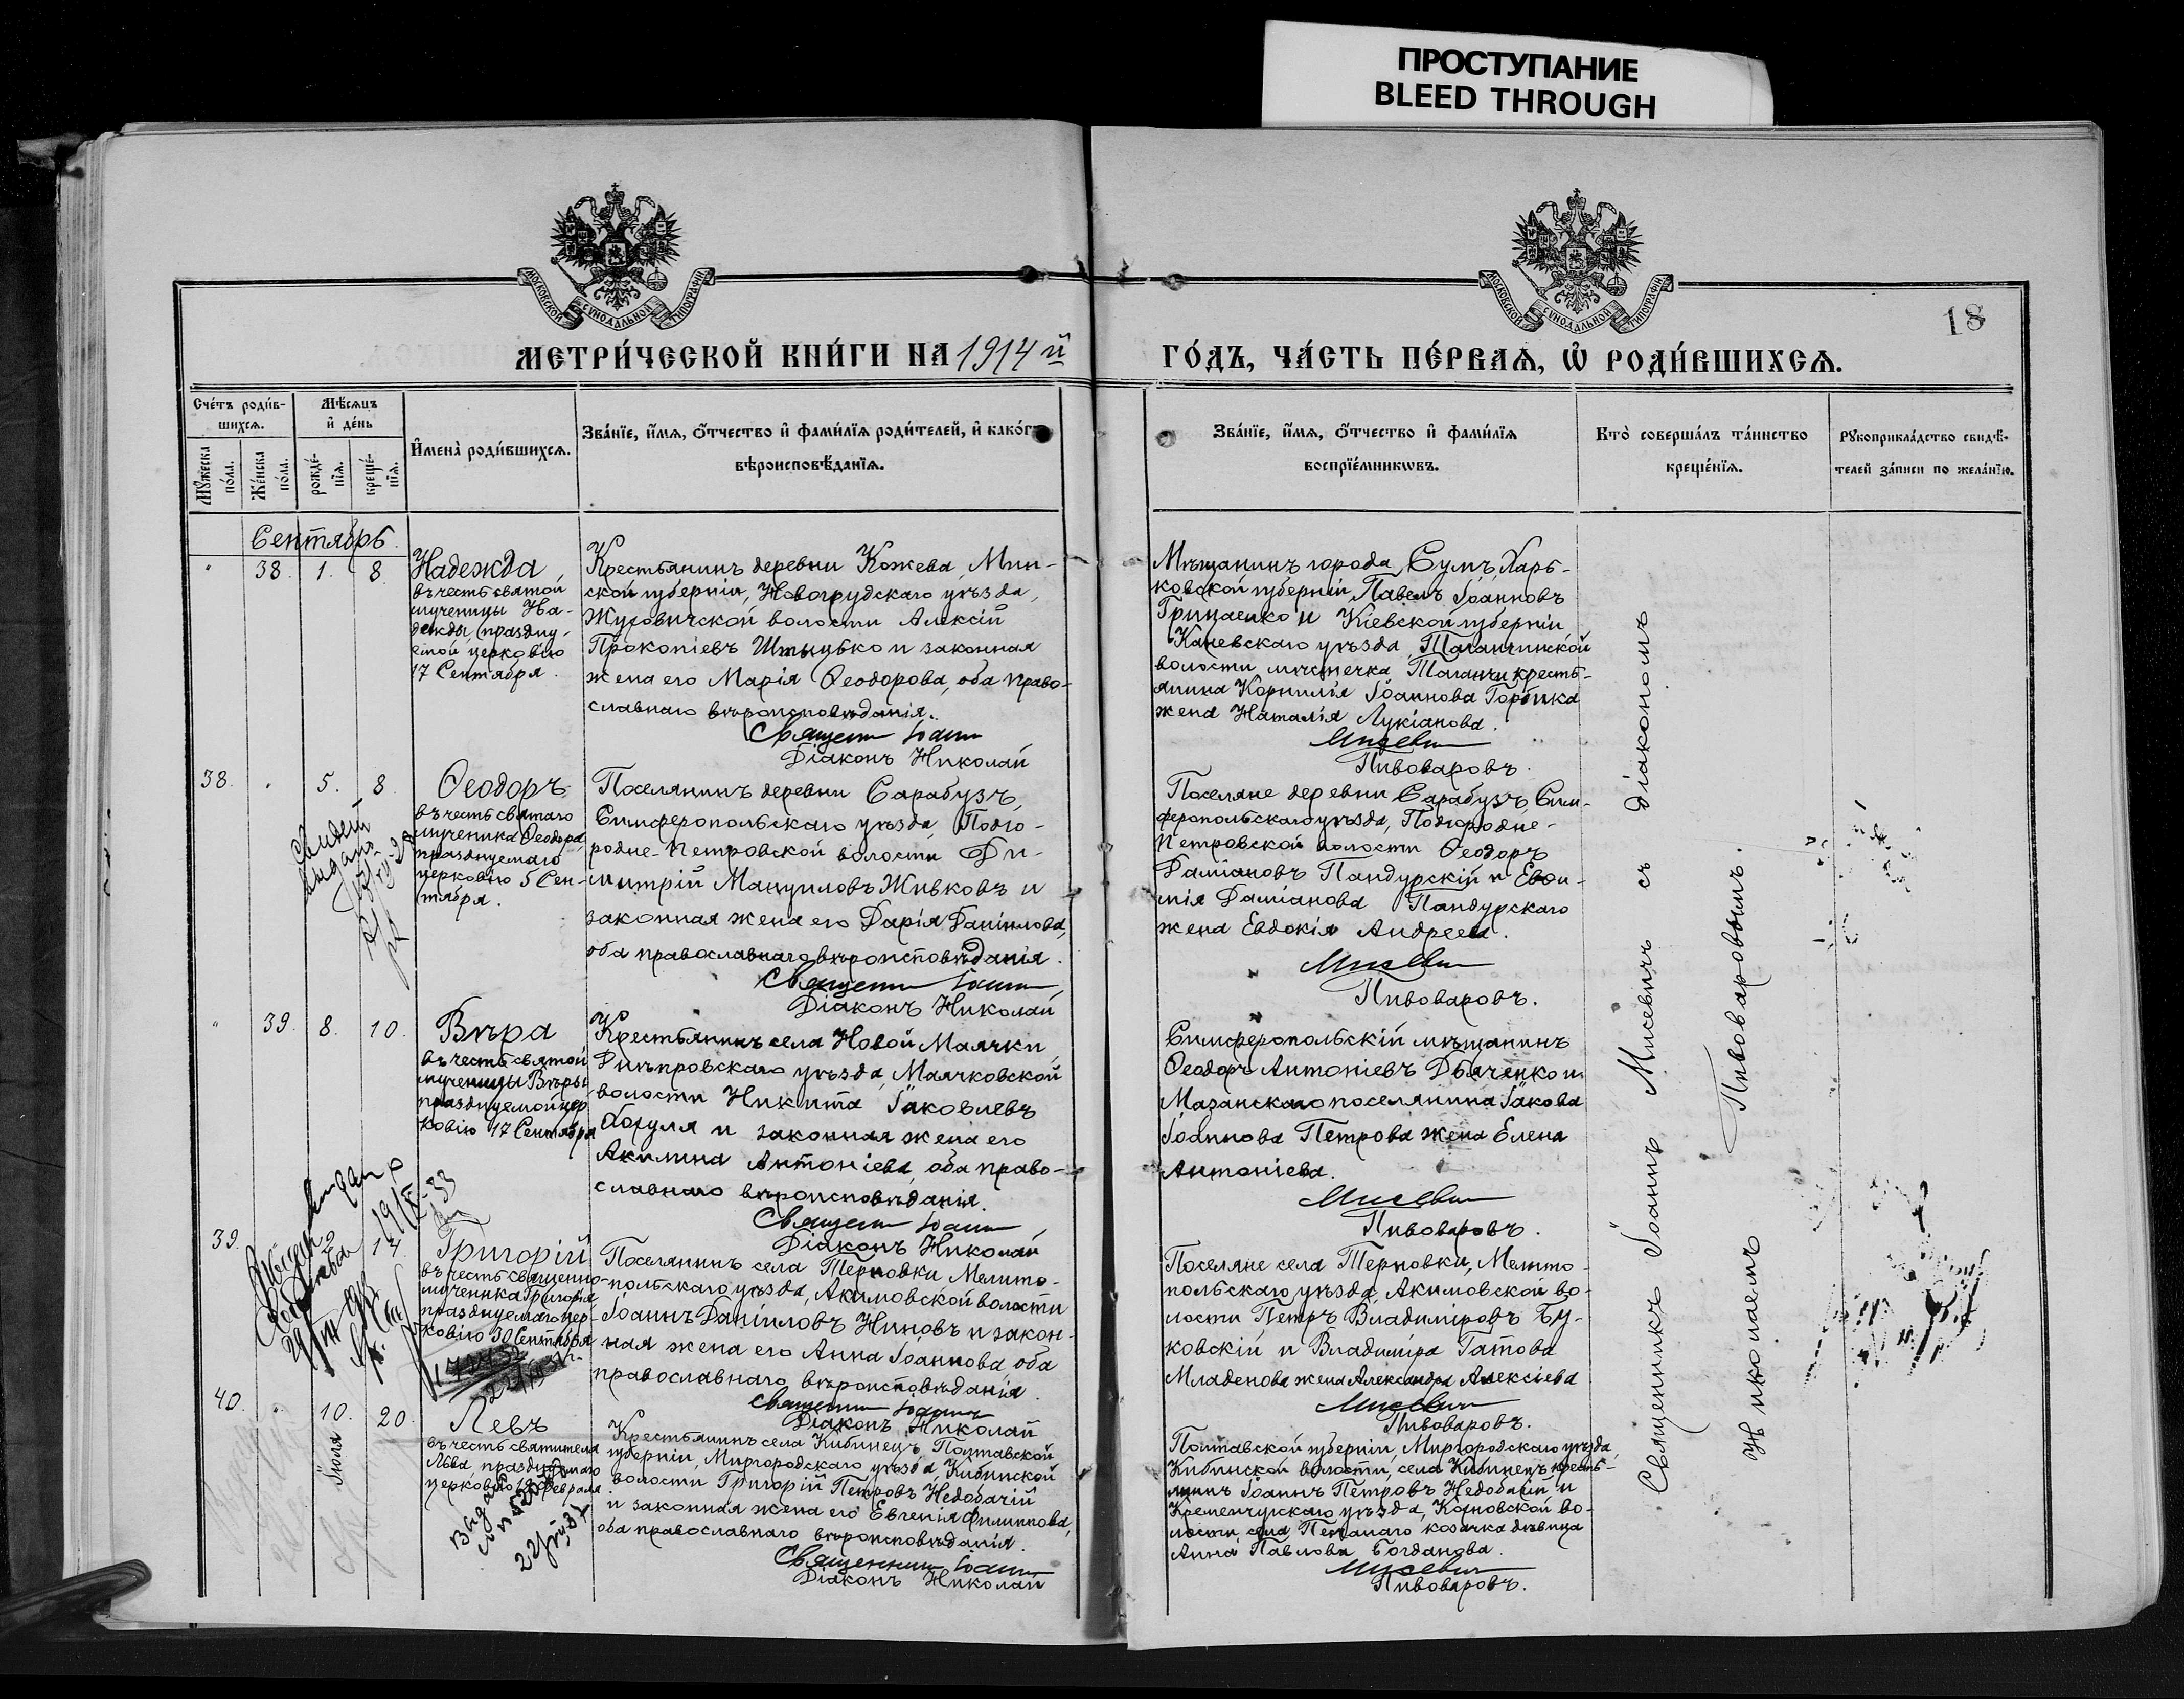 ПРОСТУПАНИЕ
BLEED THROUGH
МОСКОВСКОЙ СѴНОДАЛЬНОЙ ТИПОГРАФІИ
МОСКОВСКОЙ СѴНОДАЛЬНОЙ ТИПОГРАФІИ
18
МЕТРИ́ЧЕСКОЙ КНИ́ГИ НА 1914 й
ГО́ДЪ, ЧА́СТЬ ПЕ́РВАѦ, Ѡ҆ РОДИ́ВШИХСѦ.
Сче́тъ роди́в-
шихсѧ.
Мѣ́сѧцъ
и҆ де́нь
Мꙋ́жеска
по́ла.
Же́нска
по́ла.
рожде́-
нїѧ.
креще́-
нїѧ.
И҆мена̀ роди́вшихсѧ.
Зва́нїе, и҆́мѧ, ѻ҆́тчество и҆ фами́лїѧ роди́телей, и҆ како́гѡ
вѣроисповѣ́данїѧ.
Зва́нїе, и҆́мѧ, ѻ҆́тчество и҆ фами́лїѧ
воспрїе́мникѡвъ.
Кто̀ соверша́лъ та́инство
креще́нїѧ.
Рꙋкоприкла́дство свидѣ́-
телей за́писи по жела́нїю.
Сентябрь.
" 38. 1. 8.
Надежда,
въ честь святой
мученицы На-
дежды, праздну-
емой церковію
17 Сентября.
Крестьянинъ деревни Кожева, Мин-
ской губерніи, Новогрудскаго уѣзда,
Жуховичской волости Алексій
Прокопіевъ Штыубко и законная
жена его Марія Ѳеодорова, оба право-
славнаго вѣроисповѣданія.
Священ Іоанн
Діаконъ Николай
Мѣщанинъ города Сумъ, Харь-
ковской губерніи Павелъ Іоанновъ
Грицаенко и Кіевской губерніи
Каневскаго уѣзда, Таганчинской
волости мѣстечка Таганчи крестья-
янина Корнилія Іоаннова Горбика
жена Наталія Лукіанова.
Мисевич
Пивоваровъ.
38. " 5. 8.
Ѳеодоръ
въ честь святаго
мученика Ѳеодора,
празднуемаго
церковію 5 Сен-
тября.
Поселянинъ деревни Сарабузъ,
Симферопольскаго уѣзда, Подго-
родне-Петровской волости Ди-
митрій Мануиловъ Живковъ и
законная жена его Дарія Даніилова,
оба православнаго вѣроисповѣданія.
Священ Іоанн
Діаконъ Николай
Поселяне деревни Сарабузъ, Сим-
феропольскаго уѣзда, Подгородне-
Петровской волости Ѳеодоръ
Даміановъ Пандурскій и Евѳи-
мія Даміанова Пандурскаго
жена Евдокія Андреева.
Мисевич
Пивоваровъ.
" 39. 8. 10.
Вѣра
въ честь святой
мученицы Вѣры
празднуемой цер-
ковію 17 Сентября
Крестьянинъ села Новой Маячки
Днѣпровскаго уѣзда, Маячковской
волости Никита Іаковлевъ
и законная жена его
Акилина Антоніева, оба право-
славнаго вѣроисповѣданія.
Священ Іоанн
Діаконъ Николай
Симферопольскій мѣщанинъ
Ѳеодоръ Антоніевъ Дьяченко и
Мазанскаго поселянина Іакова
Іоаннова Петрова жена Елена
Антоніева.
Мисевич
Пивоваровъ.
39. 14.
Григорій
въ честь священно-
мученика Григорія
празднуемаго цер-
ковію 30 Сентября
Поселянинъ села Терновки Мелито-
польскаго уѣзда, Акимовской волости
Іоаннъ Даніиловъ Ниновъ и закон-
ная жена его Анна Іоаннова, оба
православнаго вѣроисповѣданія.
Священн Іоанн
Діаконъ Николай
Поселяне села Терновки, Мелито-
польскаго уѣзда, Акимовской во-
лости Петръ Владиміровъ Бу-
ковскій и Владиміра Гатова
Младенова жена Александра Алексіева
Мисевич
Пивоваровъ.
40. " 10. 20.
Іюля
Левъ
въ честь святителя
Льва празднуемаго
церковію февраля
Крестьянинъ села Кибинецъ, Полтавской
губерніи, Миргородскаго уѣзда, Кибинской
волости Григорій Петровъ Недобачій
и законная жена его Евгенія Филиппова,
оба православнаго вѣроисповѣданія.
Священник Іоанн
Діаконъ Николай
Полтавской губерніи, Миргородскаго уѣзда,
Кибинской волости, села Кибинецъ кресть-
янинъ Іоаннъ Петровъ Недобачій и
Кременчугскаго уѣзда, во-
лости, села козачка дѣвица
Анна Павлова Богданова.
Мисевич
Пивоваровъ.
Священникъ Іоаннъ Мисевичъ съ діакономъ
Николаемъ Пивоваровымъ.